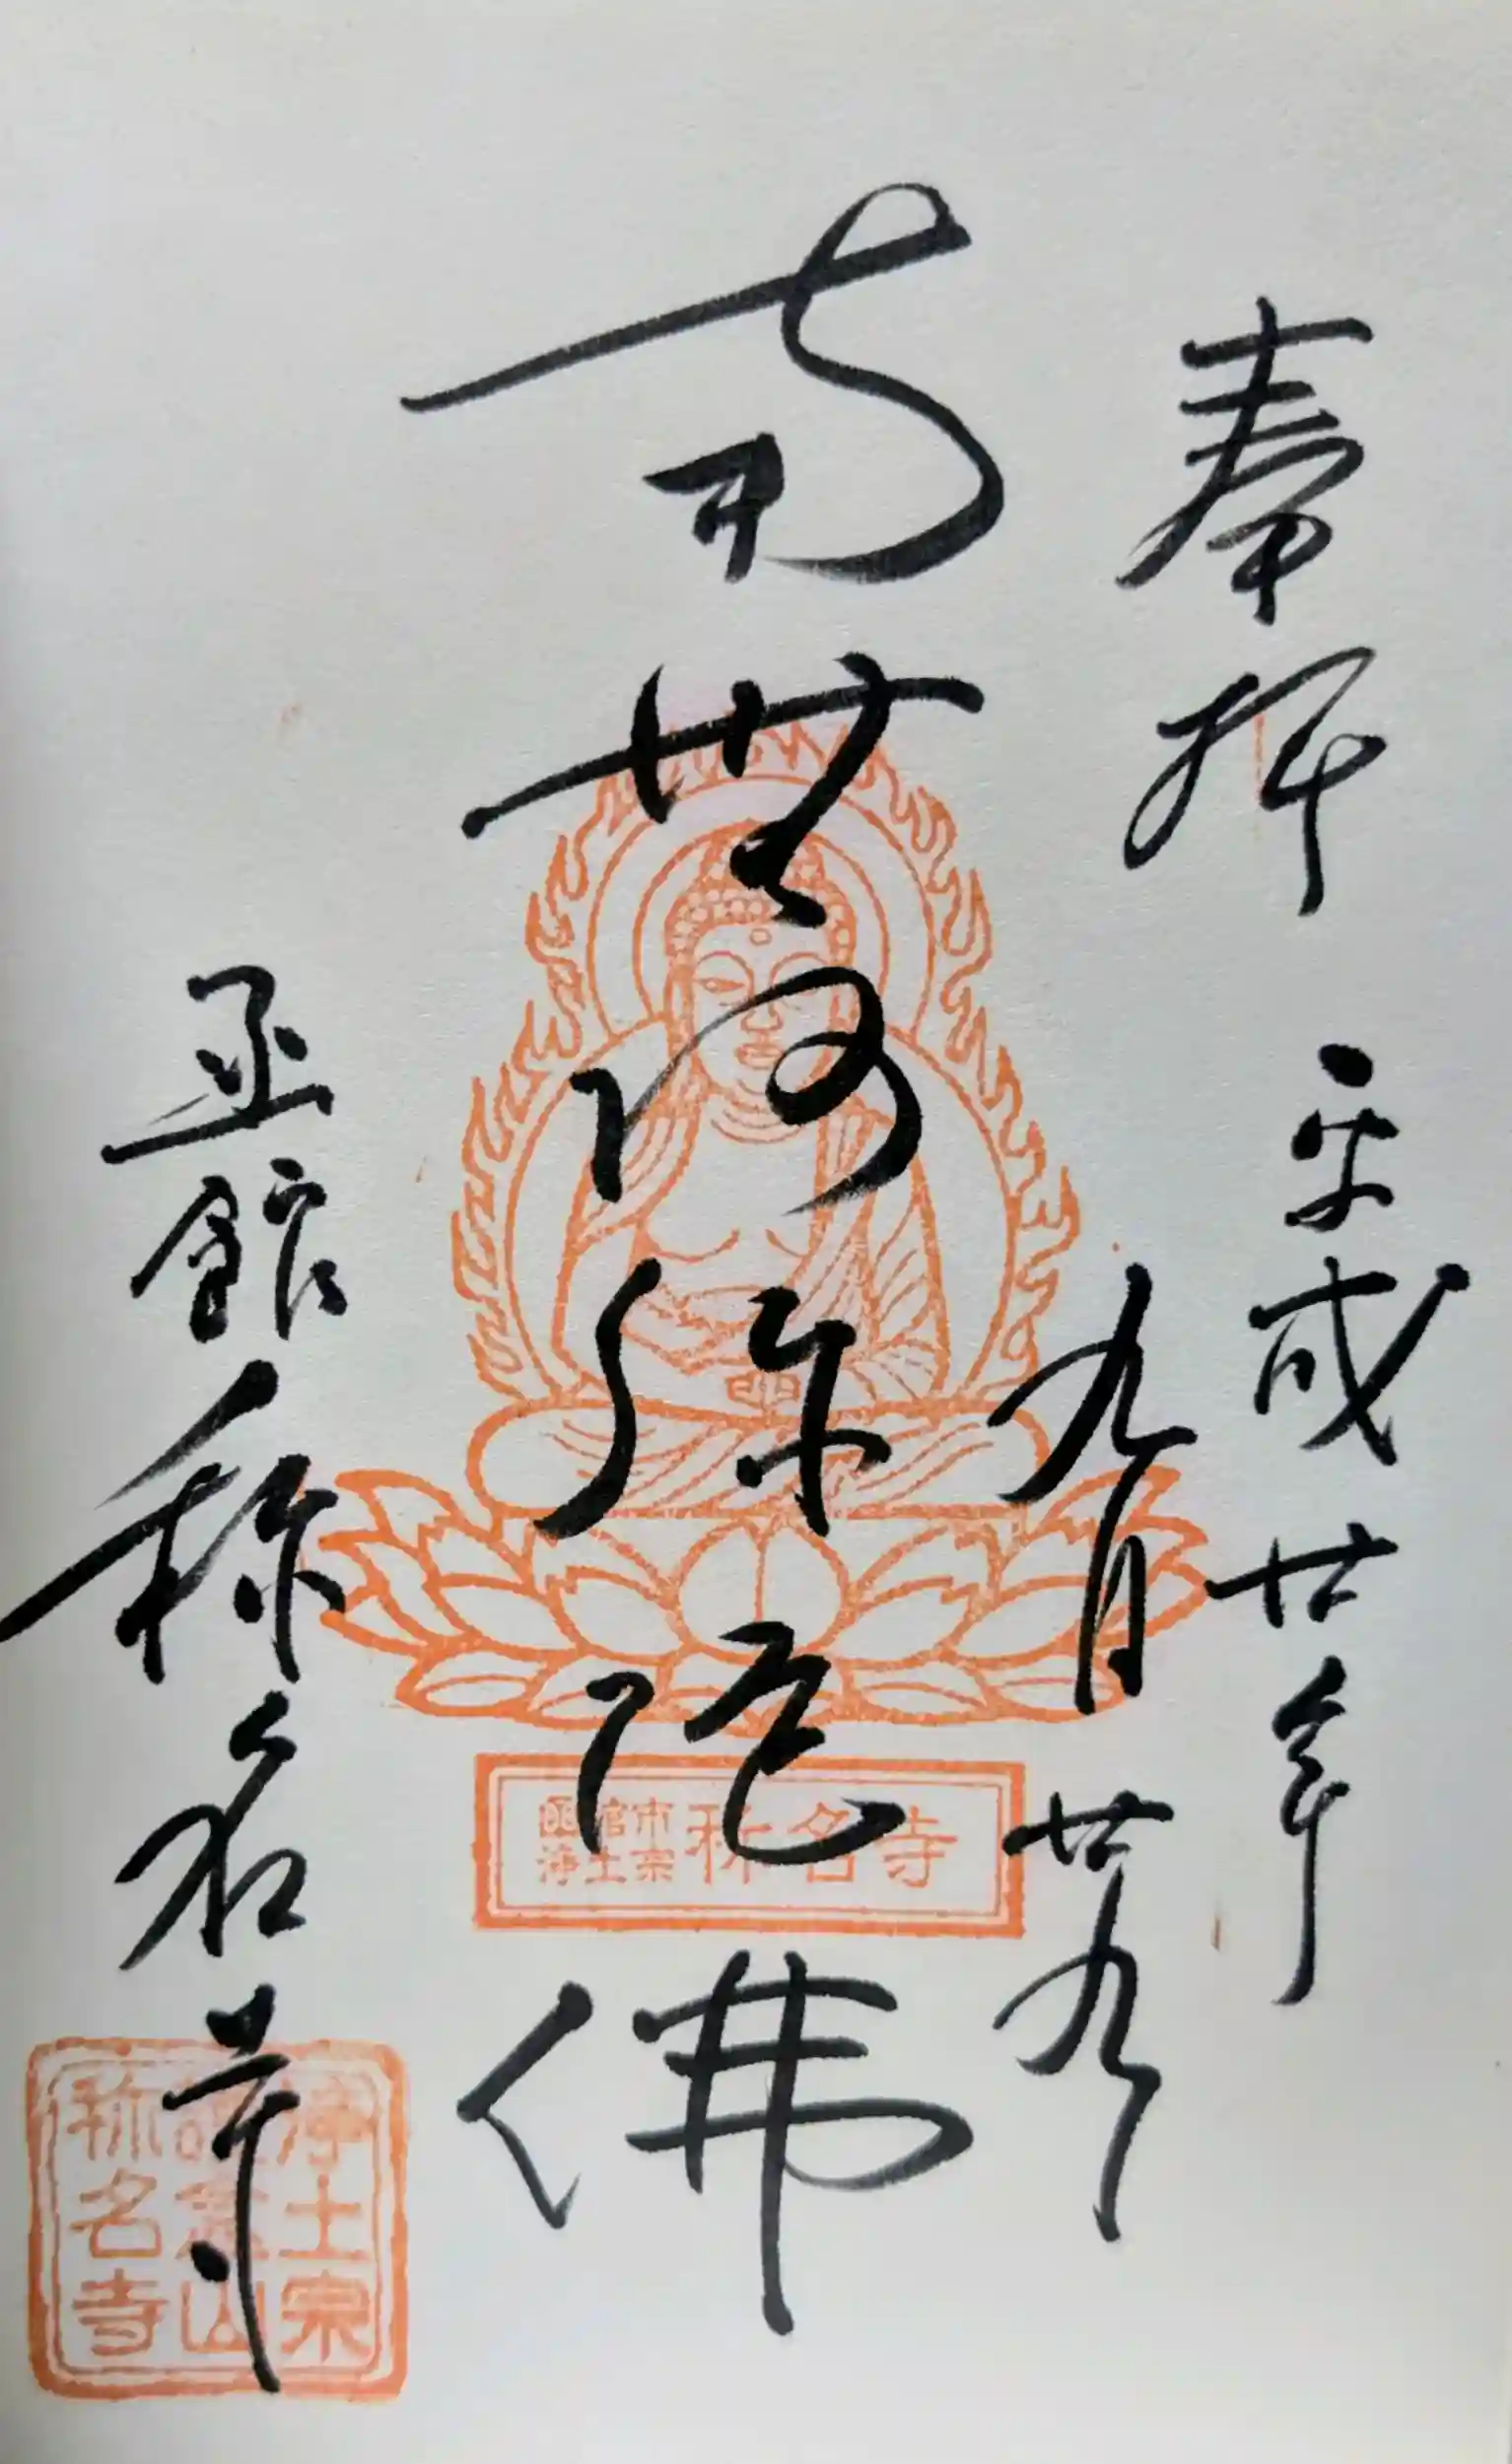 奉拝 平成廿年
九月廿九日
南無阿弥陀佛
函館 称名寺
函館市
浄土宗
称名寺
浄土宗
護念山
称名寺